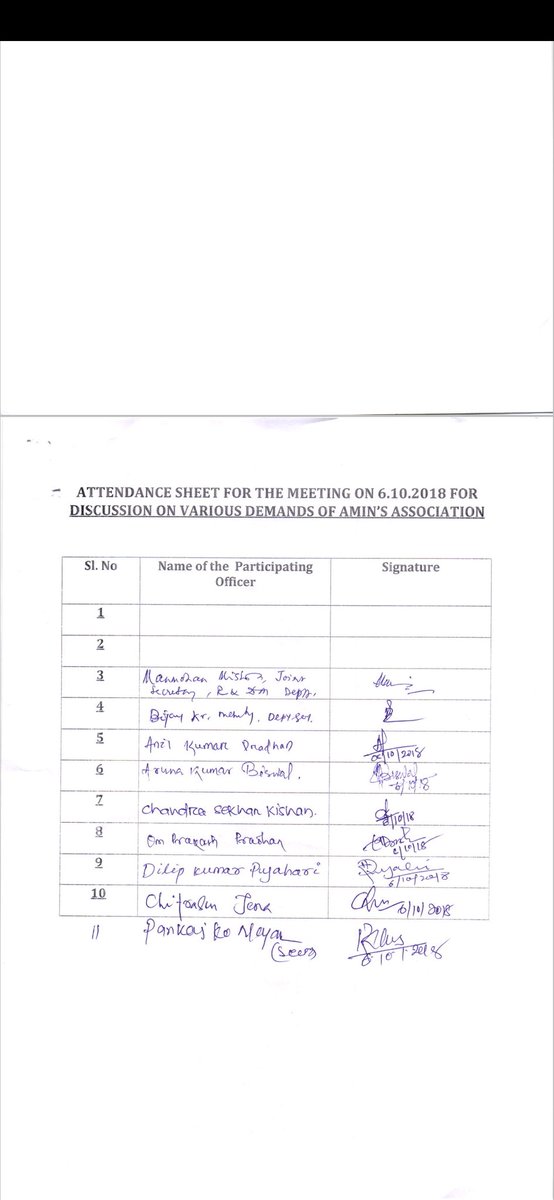 ATTENDANCE SHEET FOR THE MEETING ON 6.10.2018 FOR
DISCUSSION ON VARIOUS DEMANDS OF AMIN'S ASSOCIATION
Sl. No Name of the Participating Signature
Officer
1
2
3 Manmohan Mishra, Joint
Secretary, R & DM Deptt.
4 Bijay Kr. Dept. Sec.
5 Anil Kumar Pradhan
06/10/2018
6 Aruna Kumar Biswal.
6/10/18
7 Chandra Sekhan Kishan.
6/10/18
8 Om Prakash Pradhan
6/10/18
9 Dilip Kumar Pujahari
6/10/2018
10 Jena 6/10/2018
11 Pankaj Ku Nayak
6/10/2018